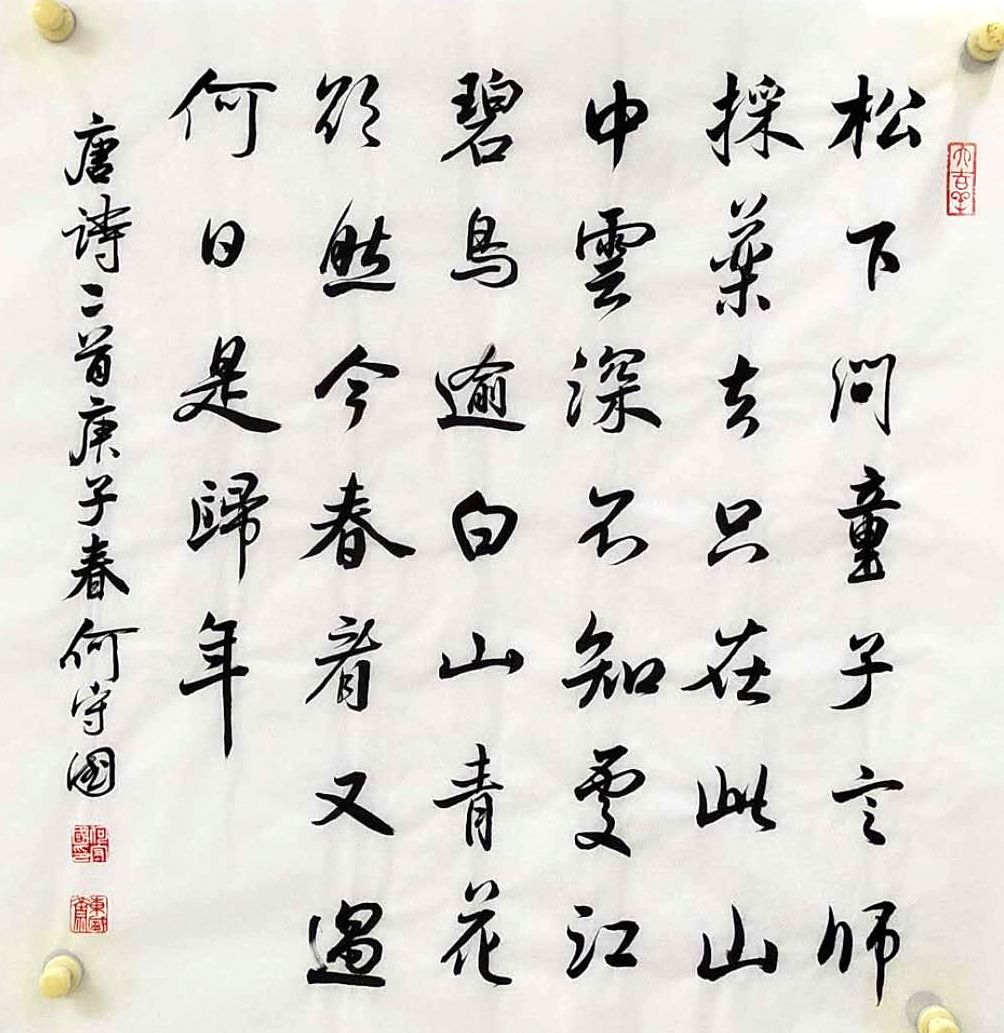 松下問童子言師
採藥去只在此山
中雲深不知處江
碧鳥逾白山青花
欲然今春看又過
何日是歸年
唐詩二首庚子春何守國
何守國印